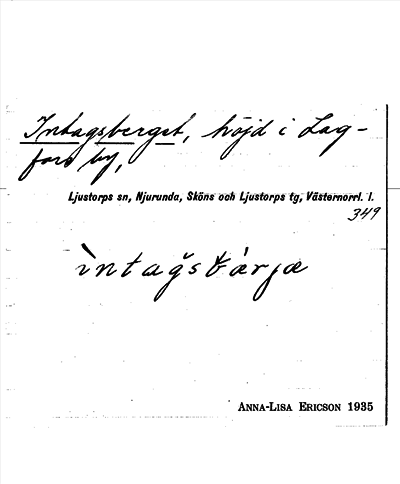 Intagsberget, höjd i Lag-
fors by,
Ljustorps sn, Njurunda, Sköns och Ljustorps tg, Västernorrl. l.
349
ANNA-LISA ERICSON 1935